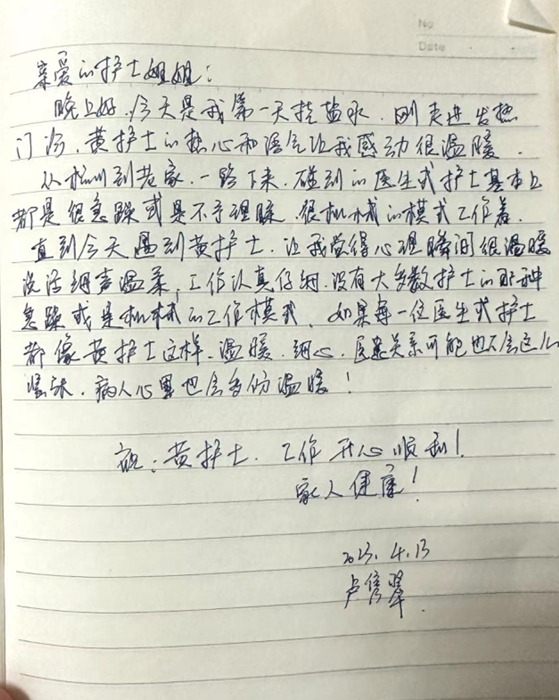 No
Date
亲爱的护士姐姐：
晚上好，今天是我第一天挂盐水．刚走进发热
门诊，黄护士的热心和语气让我感动很温暖．
从杭州到老家．一路下来．碰到的医生或护士基本上
都是很急躁或是不予理睬．很机械的模式工作着．
直到今天遇到黄护士．让我觉得心理瞬间很温暖
说话细声温柔，工作认真仔细．没有大多数护士的那种
急躁或是机械的工作模式．如果每一位医生或护士
都像黄护士这样．温暖．细心．医患关系可能也不会这么
紧张．病人心里也会多份温暖！
祝：黄护士．工作开心顺利！
家人健康！
2023.4.13
卢